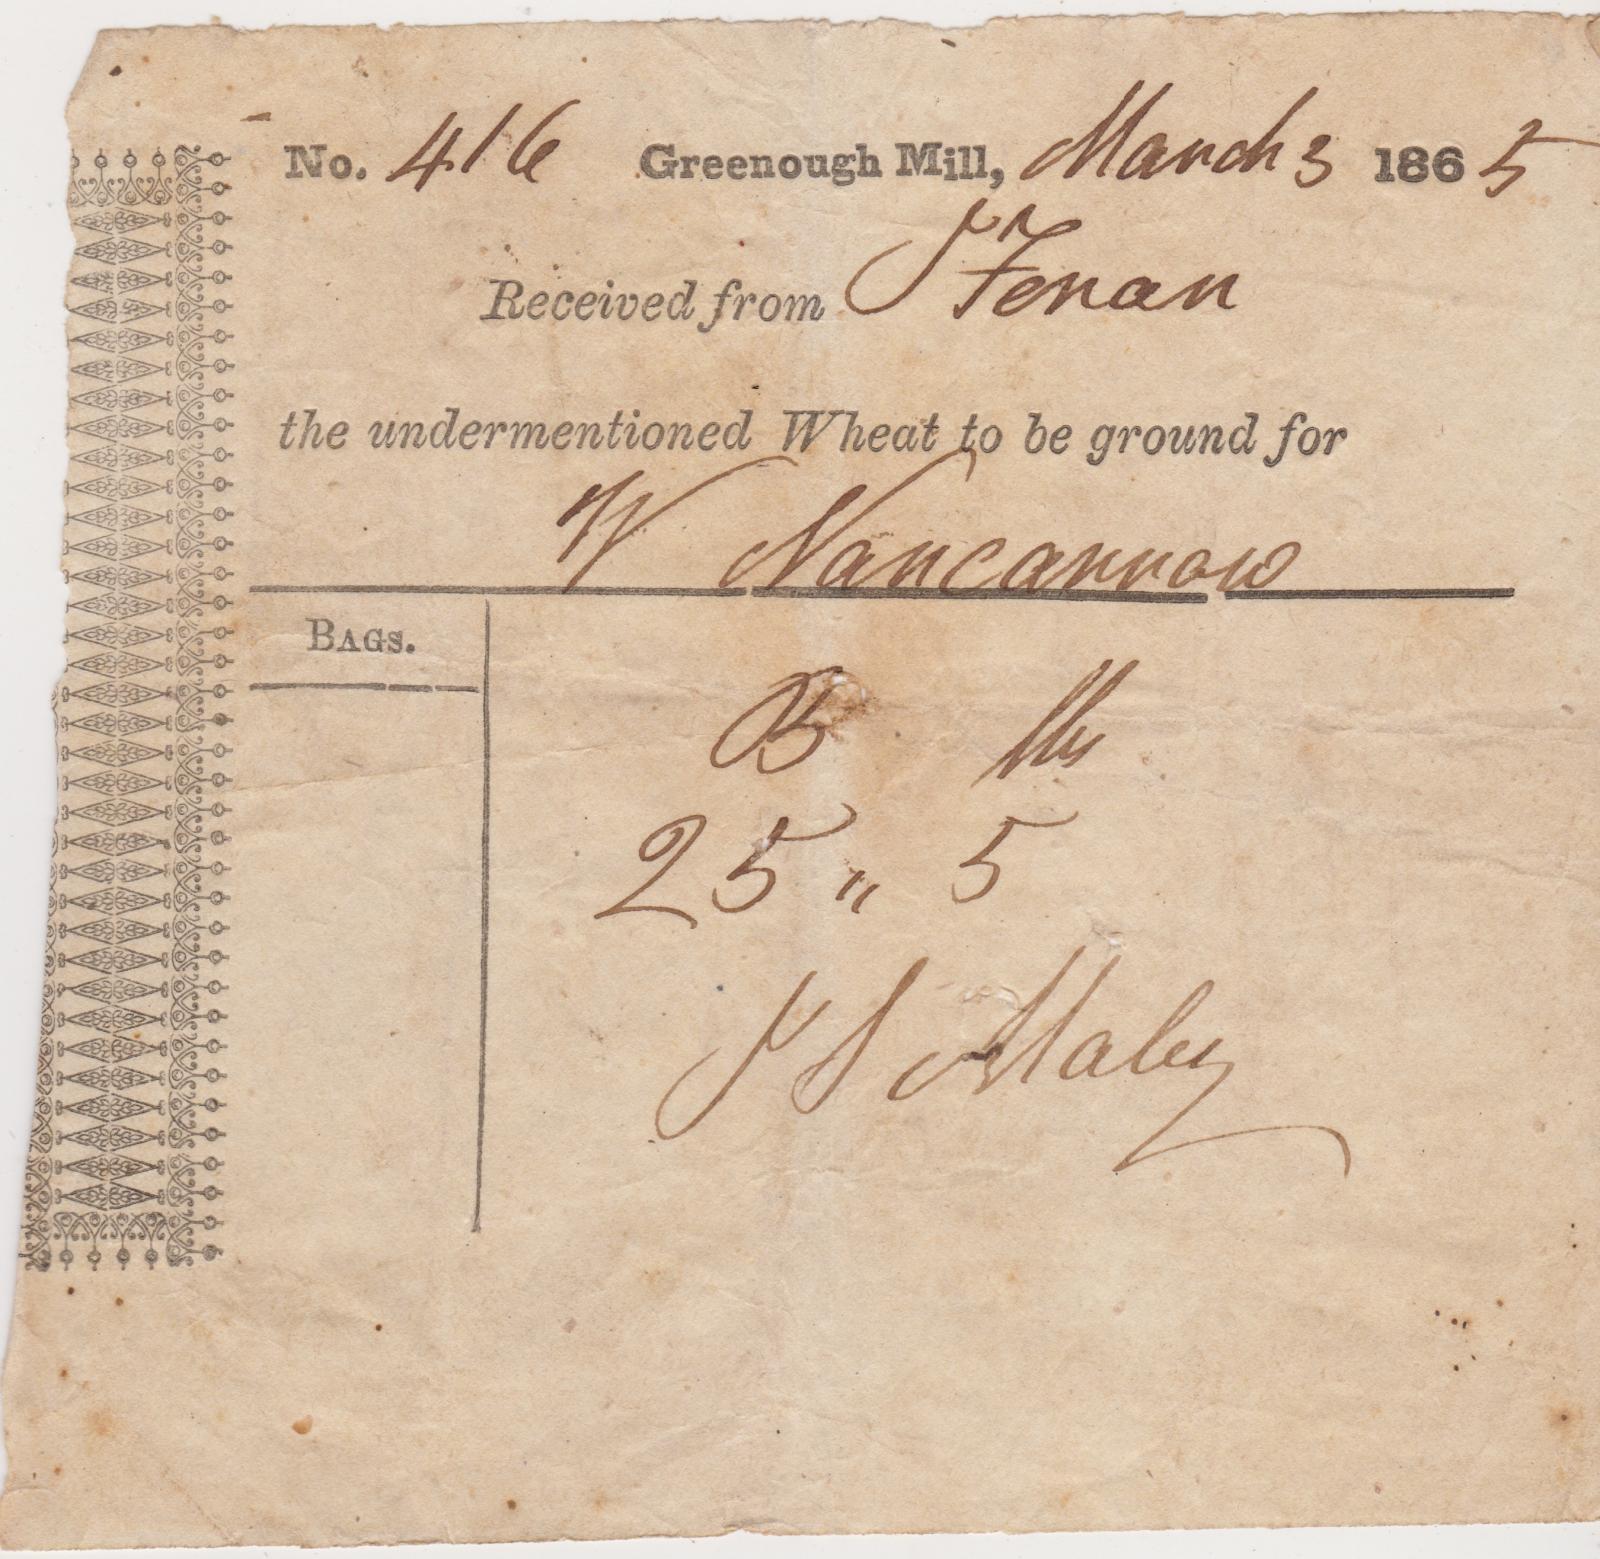 No. 416 Greenough Mill, March 3 1865
Received from J Fenan
the undermentioned Wheat to be ground for
W Nancarrow
BAGS.
B lbs
25 " 5
J S Maley